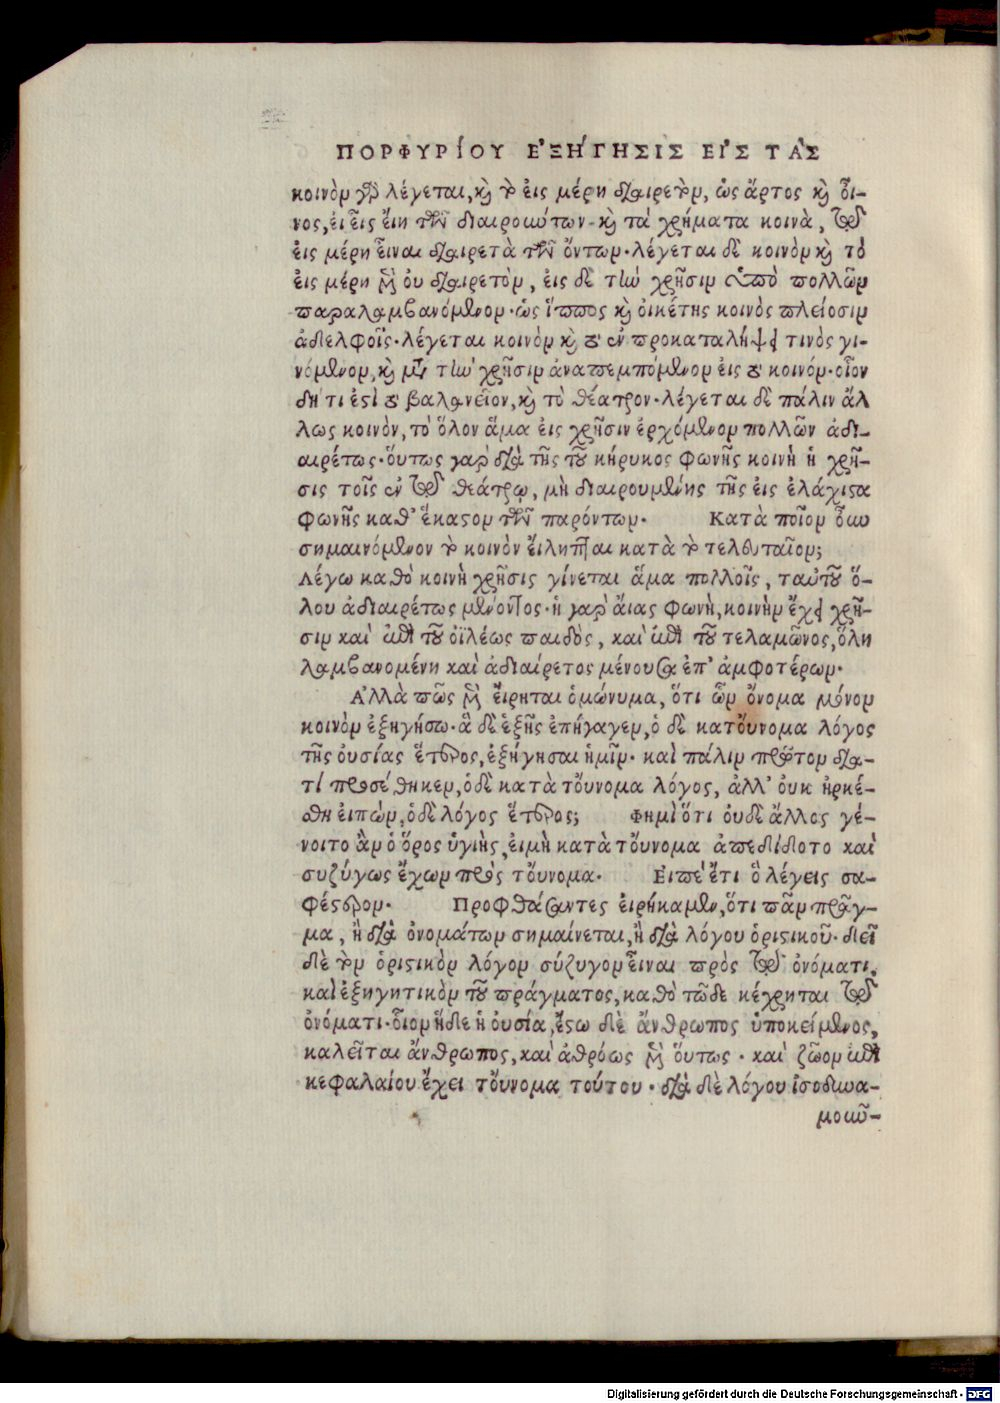 ΠΟΡΦΥΡΙΟΥ ἘΞΗΓΗΣΙΣ ΕἸΣ ΤᾺΣ
κοινὸν γὰρ λέγεται, καὶ τὸ εἰς μέρη διαιρετὸν, ὡς ἄρτος καὶ οἶ-
νος, εἰ εἷς εἴη τῶν διαιρουώτων· καὶ τὰ χρήματα κοινὰ, τῷ
εἰς μέρη εἶναι διαιρετὰ τῶν ὄντων· λέγεται δὲ κοινὸν καὶ τὸ
εἰς μέρη μὲν οὐ διαιρετὸν, εἰς δὲ τὴν χρῆσιν ὑπὸ πολλῶν
παραλαμβανόμενον· ὡς ἵππος καὶ οἰκέτης κοινὸς πλείοσιν
ἀδελφοῖς· λέγεται κοινὸν καὶ τὸ ἐν προκαταλήψει τινὸς γι-
νόμενον, καὶ μετὰ τὴν χρῆσιν ἀναπεμπόμενον εἰς τὸ κοινόν· οἷον
δή τι ἐστὶ τὸ βαλανεῖον, καὶ τὸ θέατρον· λέγεται δὲ πάλιν ἄλ
λως κοινὸν, τὸ ὅλον ἅμα εἰς χρῆσιν ἐρχόμενον πολλῶν ἀδι-
αιρέτως· οὕτως γὰρ διὰ τῆς τοῦ κήρυκος φωνῆς κοινὴ ἡ χρῆ-
σις τοῖς ἐν τῷ θεάτρῳ, μὴ διαιρουμένης τῆς εἰς ἐλάχιστα
φωνῆς καθ' ἕκαστον τῶν παρόντων· Κατὰ ποῖον οὖν
σημαινόμενον τὸ κοινὸν εἴληπται κατὰ τὸ τελευταῖον;
Λέγω καθὸ κοινὴ χρῆσις γίνεται ἅμα πολλοῖς, ταὐτοῦ ὅ-
λου ἀδιαιρέτως μένοντος· ἡ γὰρ ἄιας φωνὴ, κοινὴν ἔχει χρῆ-
σιν καὶ ἐπὶ τοῦ ὀϊλέως παιδὸς, καὶ ἐπὶ τοῦ τελαμῶνος, ὅλη
λαμβανομένη καὶ ἀδιαίρετος μένουσα ἐπ' ἀμφοτέρων·
Ἀλλὰ πῶς μὲν εἴρηται ὁμώνυμα, ὅτι ὧν ὄνομα μόνον
κοινὸν ἐξηγήσω· ἃ δὲ ἑξῆς ἐπήγαγεν, ὁ δὲ κατὄυνομα λόγος
τῆς οὐσίας ἕτερος, ἐξήγησαι ἡμῖν· καὶ πάλιν πρῶτον δια-
τί προσέθηκεν, ὁ δὲ κατὰ τὄυνομα λόγος, ἀλλ' οὐκ ἠρκέ-
σθη εἰπὼν, ὁ δὲ λόγος ἕτερος; Φημὶ ὅτι οὐδὲ ἄλλος γέ-
νοιτο ἂν ὁ ὅρος ὑγιὴς, εἰ μὴ κατὰ τὄυνομα ἀπεδίδοτο καὶ
συζύγως ἔχων πρὸς τὄυνομα· Εἰπὲ ἔτι ὃ λέγεις σα-
φέστερον· Προφθάσαντες εἰρήκαμεν, ὅτι πᾶν πρᾶγ-
μα, ἢ διὰ ὀνομάτων σημαίνεται, ἢ διὰ λόγου ὁριστικοῦ· δεῖ
δὲ τὸν ὁριστικὸν λόγον σύζυγον εἶναι πρὸς τῷ ὀνόματι,
καὶ ἐξηγητικὸν τοῦ πράγματος, καθὸ τῶδε κέχρηται τῷ
ὀνόματι· οἷον ἥδε ἡ οὐσία, ἔστω δὲ ἄνθρωπος ὑποκείμενος,
καλεῖται ἄνθρωπος, καὶ ἀθρόως μὲν οὕτως· καὶ ζῶον ἐπὶ
κεφαλαίου ἔχει τὄυνομα τούτου· διὰ δὲ λόγου ἰσοδυνα-
μοῦν-